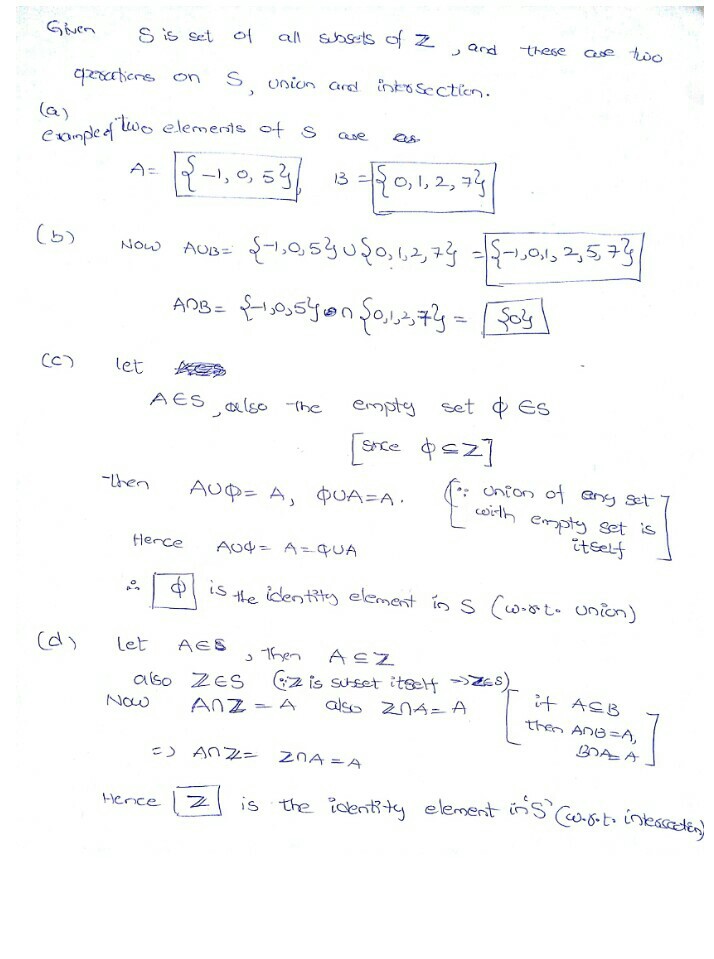 Given S is set of all subsets of Z, and these are two
operations on S, union and intersection.
(a)
example of two elements of S are as
A = {-1, 0, 5}, B = {0, 1, 2, 7}
(b) Now A∪B = {-1,0,5} ∪ {0,1,2,7} = {-1,0,1,2,5,7}
A∩B = {-1,0,5} ∩ {0,1,2,7} = {0}
(c) let
A∈S, also the empty set ϕ ∈S
[since ϕ ⊆ Z]
then A∪ϕ = A, ϕ∪A = A. [∵ union of any set
with empty set is
itself]
Hence A∪ϕ = A = ϕ∪A
∴ ϕ is the identity element in S (w.r.t. union)
(d) let A∈S, then A ⊆ Z
also Z∈S (∵ Z is subset itself ⇒ Z∈S)
Now A∩Z = A also Z∩A = A [if A⊆B
then A∩B = A,
B∩A = A]
⇒ A∩Z = Z∩A = A
Hence Z is the identity element in 'S' (w.r.t. intersection)